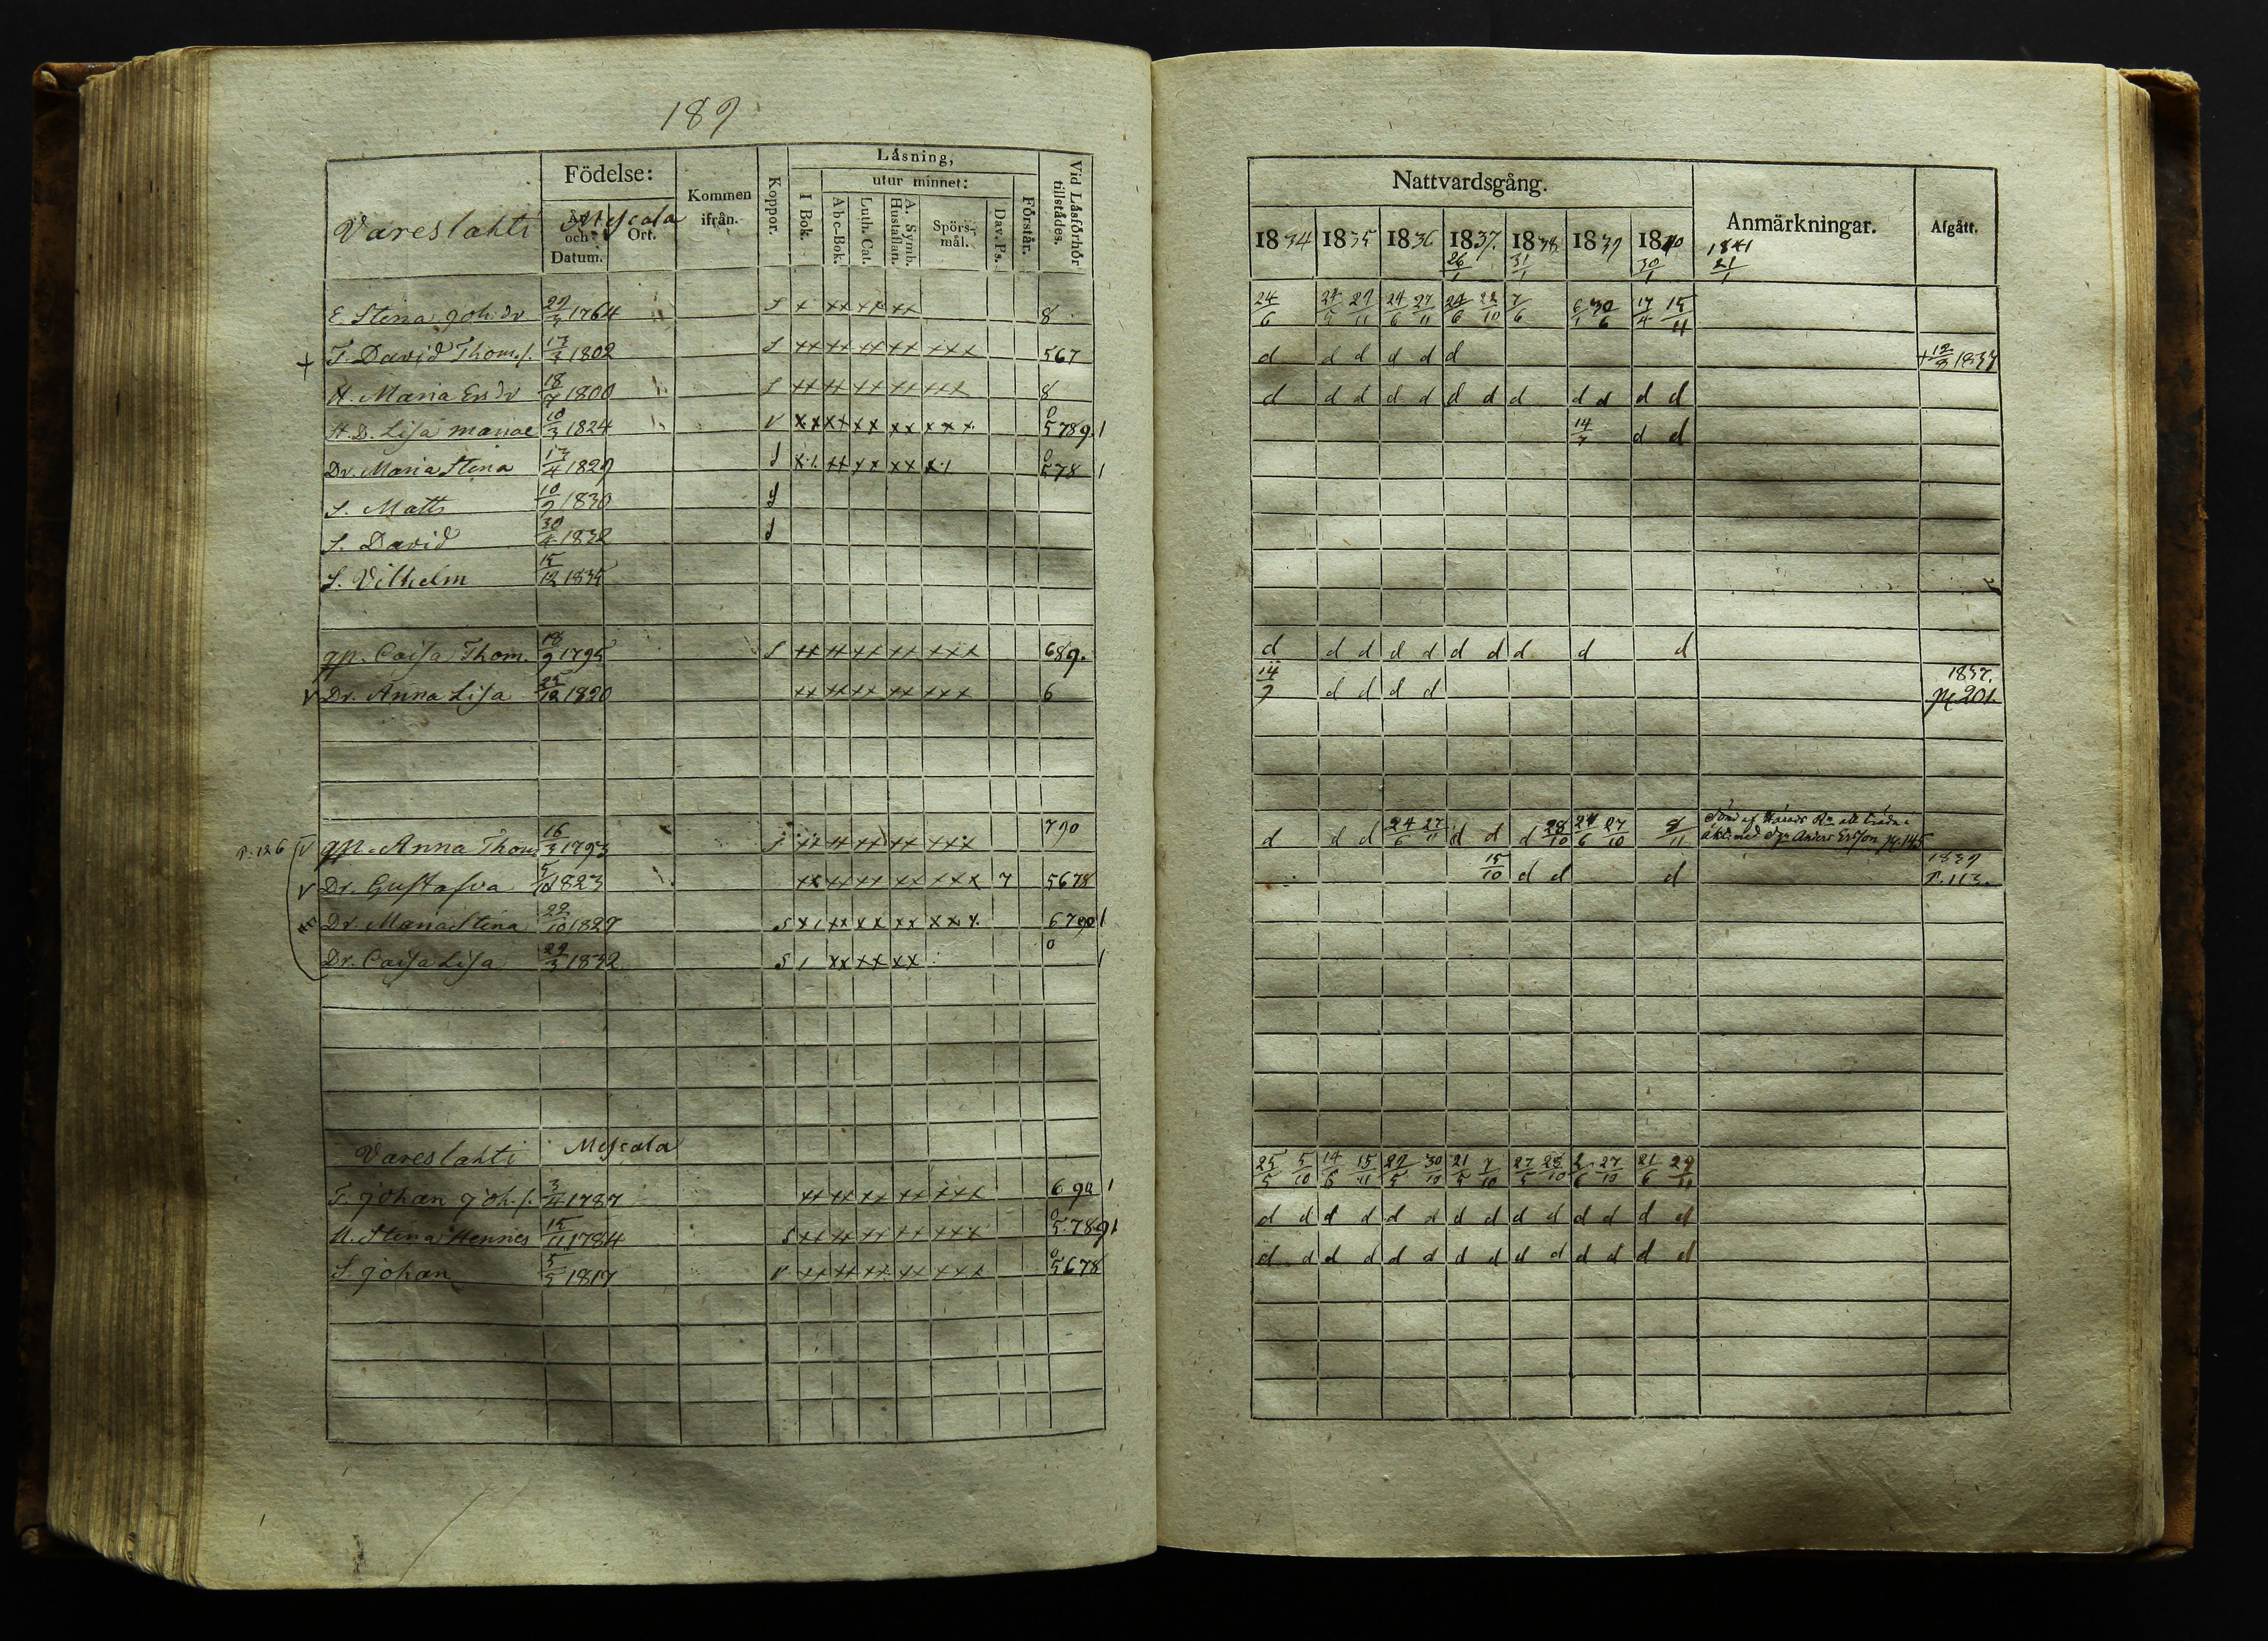 189
Födelse:
Kommen ifrån.
Koppor.
Läsning,
I Bok.
utur minnet:
Abc-Bok.
Luth. Cat.
A. Symb. Hustaflan.
Spörs-mål.
Dav. Ps.
Förstår.
Vid Läsförhör tillstädes.
Vareslahti Mescala
och Datum.
Ort.
E. Stina Joh:dr 29/3 1764 S x xx xx xx 8
+ T. David Thom.s. 13/3 1802 S xx xx xx xx xxx 567
H. Maria Ersdr 18/7 1800 S xx xx xx xx xxx 8
H.D. Lisa mariae 10/3 1824 V xx xx xx xx xxx 0 5789.1
Dr. Maria Stina 13/4 1829 S x1 xx xx xx x1 0 578 1
S. Matts 10/9 1830 S
S. David 30/4 1832 S
S. Vilhelm 15/12 1835
gp. Caisa Thom. 18/9 1795 S xx xx xx xx xxx 689.
V Dr. Anna Lisa 25/12 1820 xx xx xx xx xxx 6
790
P. 126 V gp. Anna Thom 16/3 1793 S xx xx xx xx xxx
V Dr. Gustafva 1823 xx xx xx xx xxx 7 5678
Dr. Maria Stina 22/10 1829 S x1 xx xx xx xxx 6790 1
Dr. Caisa Lisa 29/3 1832 S 1 xx xx xx 0 1
Vareslahti Mescala
T. Johan Joh.s. 3/4 1787 xx xx xx xx xxx 690 1
U. Stina Hennes 15/11 1784 S xx xx xx xx xxx 0 5.789 1
S. Johan 5/5 1817 V xx xx xx xx xxx 0 5678
Nattvardsgång.
Anmärkningar.
Afgått.
1834 1835 1836 1837. 1838 1839 1840 1841
26/1 31/1 30/1 21/1
24/6 24/5 29/11 24/6 27/11 24/6 22/10 7/6 6/1 30/6 17/4 15/11
d d d d d d + 12/8 1837
d d d d d d d d d d d d
14/7 d d
d d d d d d d d d d
14/7 d d d d 1837. pg 201.
d d d 24/6 27/11 d d d 28/10 24/6 27/10 8/11
äkt. med Anders Ersson pg. 145
15/10 d d d 1839 P. 113.
25/5 5/10 14/6 15/11 29/5 30/10 21/5 7/10 27/5 28/10 2/6 27/10 21/6 29/11
d d d d d d d d d d d d d d
d d d d d d d d d d d d d d